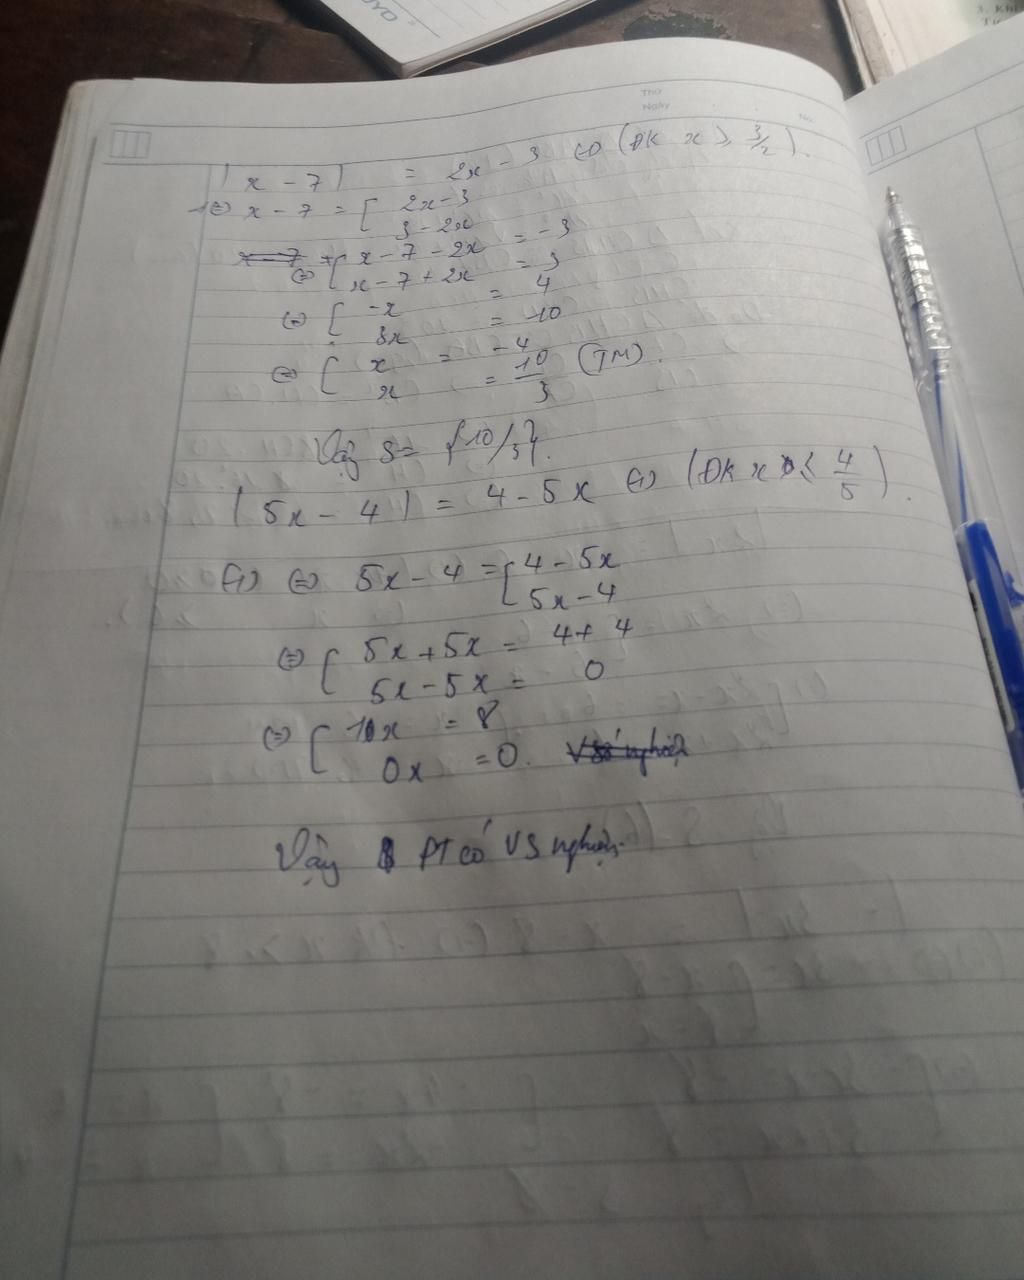 Thứ
Ngày
No.
|x - 7| = 2x - 3 (1) (ĐK x ≥ 3/2).
(1) ⇔ x - 7 = [ 2x - 3
3 - 2x
⇔ [ x - 7 - 2x = -3
x - 7 + 2x = 3
⇔ [ -x = 4
3x = 10
⇔ [ x = -4
x = 10/3 (TM).
Vậy S = {10/3}.
|5x - 4| = 4 - 5x (1) (ĐK x ≤ 4/5).
(1) ⇔ 5x - 4 = [ 4 - 5x
5x - 4
⇔ [ 5x + 5x = 4 + 4
5x - 5x = 0
⇔ [ 10x = 8
0x = 0.
Vậy PT có VS nghiệm.